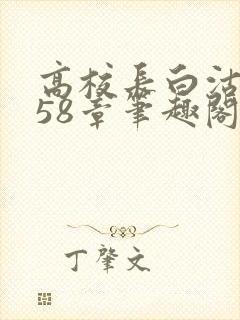 高校长白洁
58章笔趣阁
丁肇文